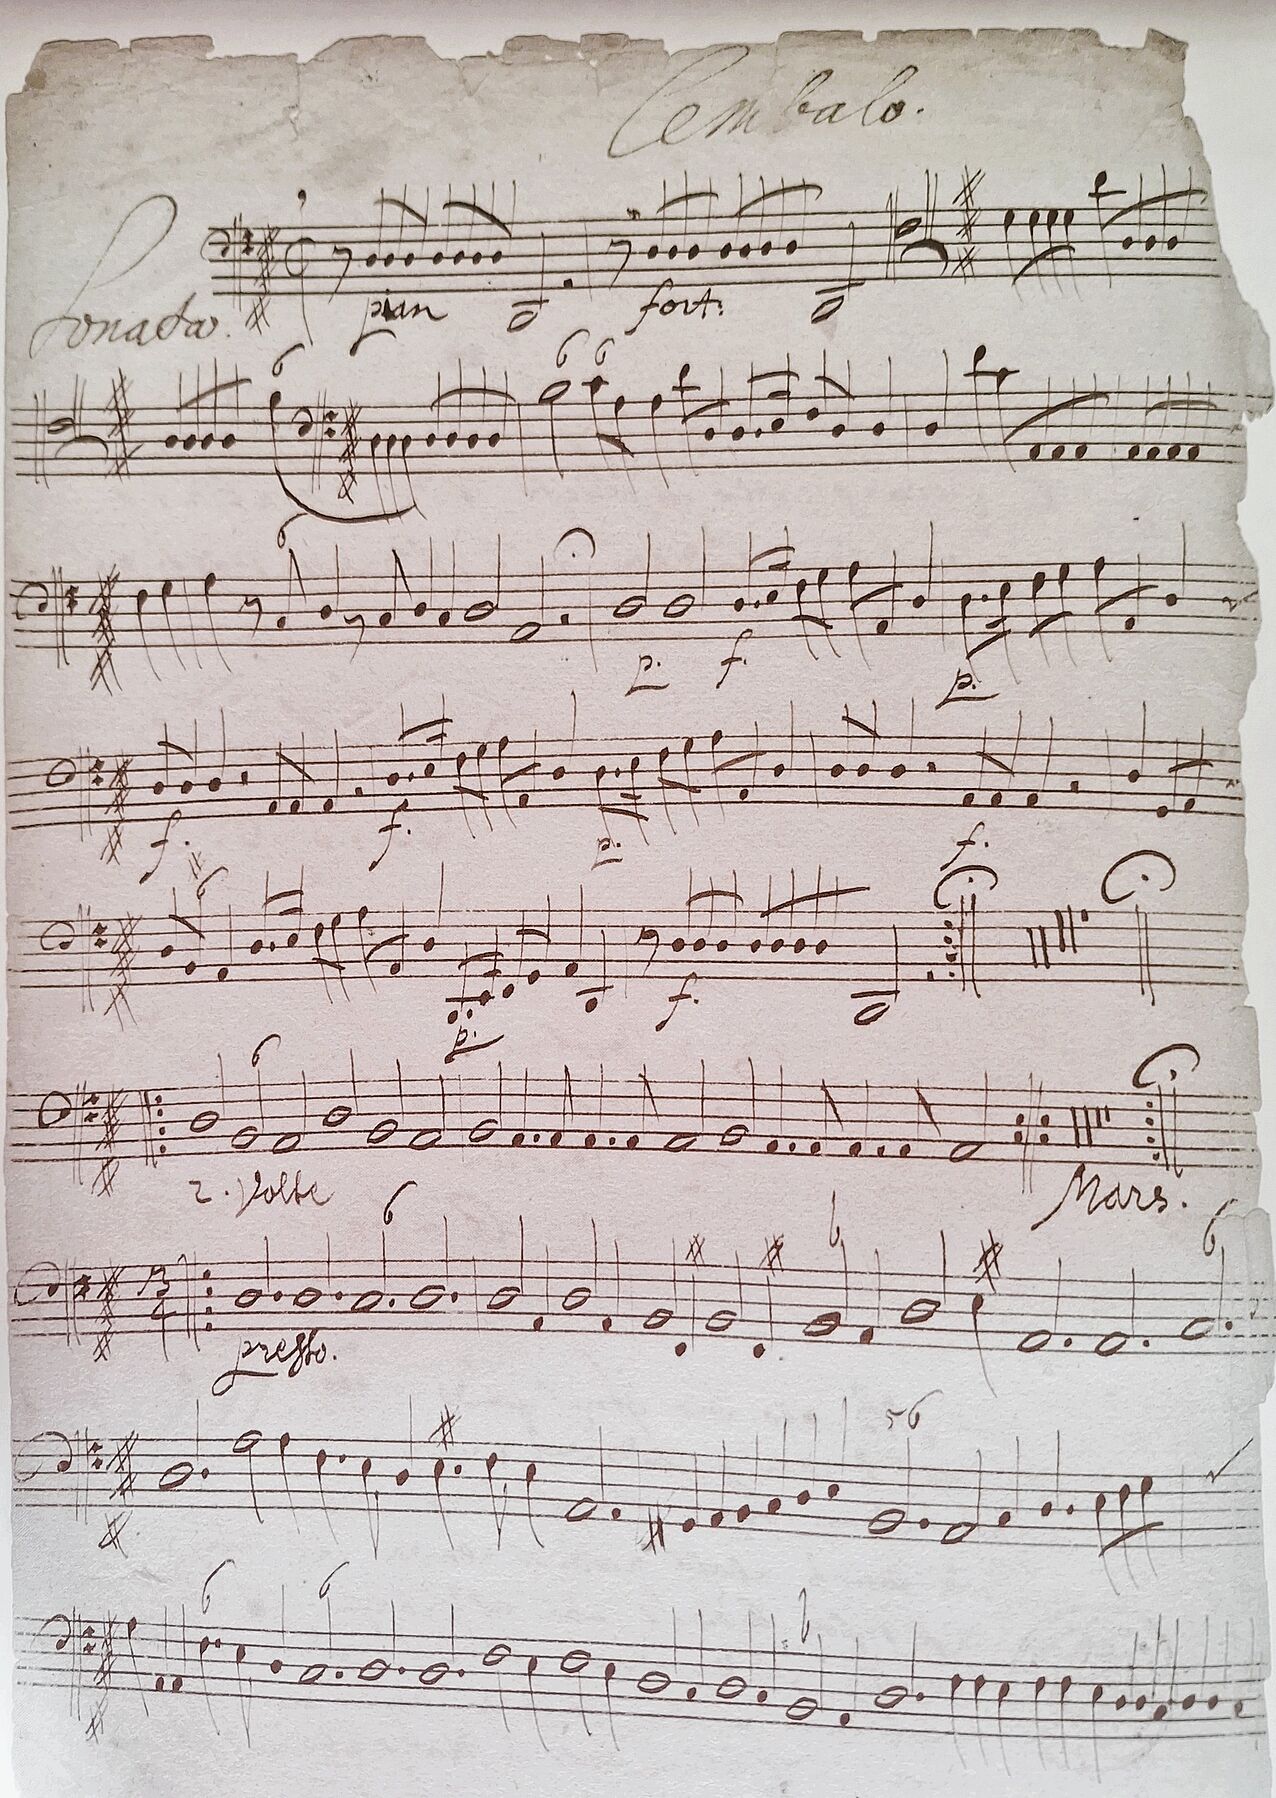 Cembalo.
Sonata.
pian fort:
6
6 6
6
p. f. p.
f. f. p. f.
6
p. f.
6
2. Volte Mars.
6 6 6
3
4
presto.
5 6
6 6 6